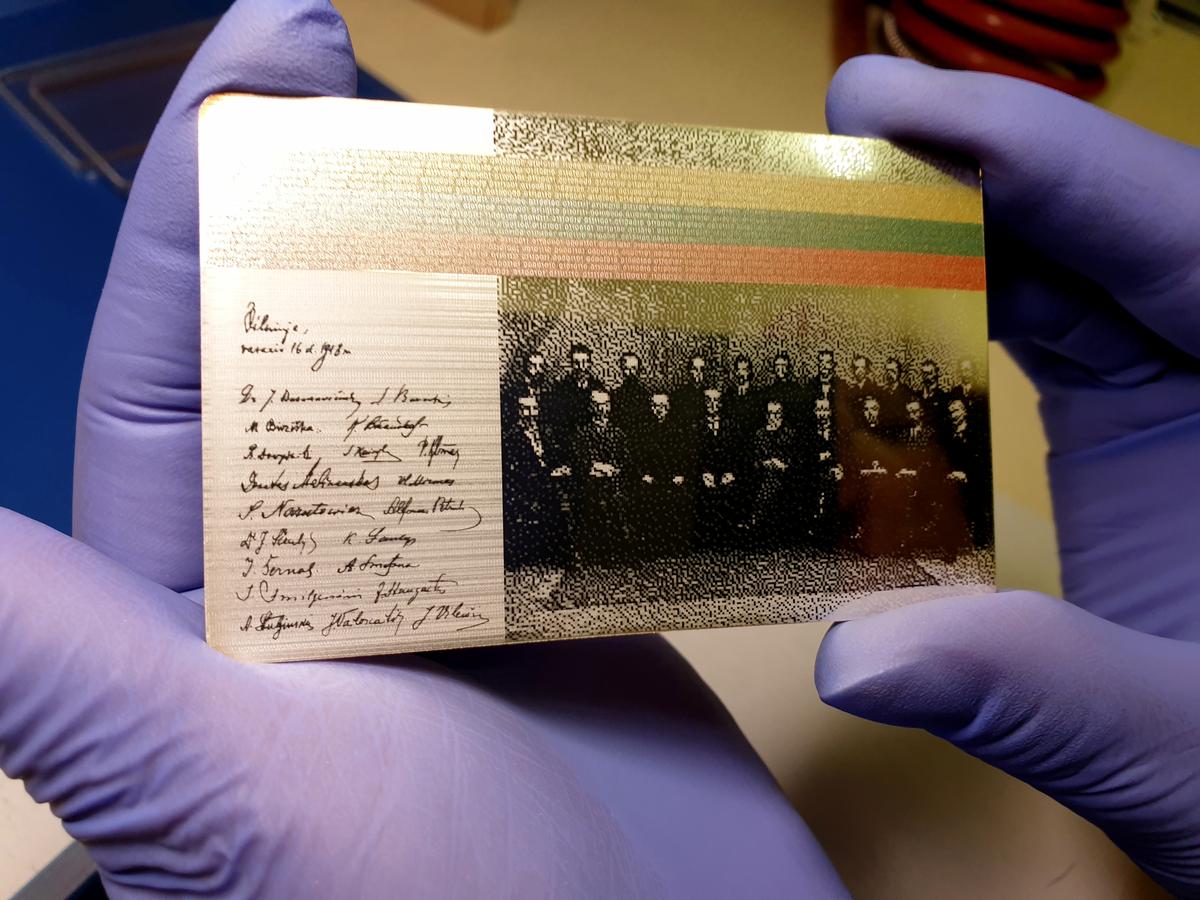 Vilniuje,
vasario 16 d. 1918 m.
Dr J. Basanavičius S. Banaitis
M. Biržiška. K Bizauskas
Pr. Dovydaitis S Kairys P. Klimas
Donatas Malinauskas Vl. Mironas
S. Narutowicz Alfonsas Petrulis
Dr J Šaulys K. Šaulys
J. Šernas A. Smetona
J. Smilgevičius J. Staugaitis
A. Stulginskis J Vailokaitis J. Vileišis